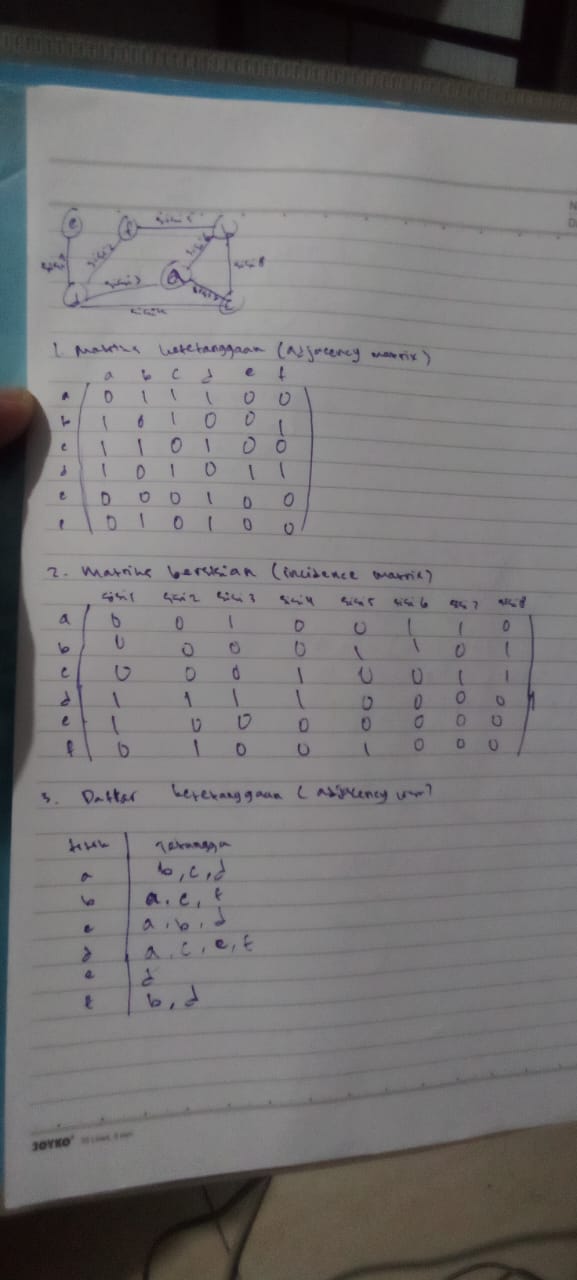 e f sisi 5 b
sisi 1 sisi 2 sisi 6 sisi 8
sisi 3 a sisi 7
d sisi 4 c
1. Matriks ketetanggaan (adjacency matrix)
a b c d e f
a 0 1 1 1 0 0
b 1 0 1 0 0 1
c 1 1 0 1 0 0
d 1 0 1 0 1 1
e 0 0 0 1 0 0
f 0 1 0 1 0 0
2. Matriks bersisian (incidence matrix)
sisi 1 sisi 2 sisi 3 sisi 4 sisi 5 sisi 6 sisi 7 sisi 8
a 0 0 1 0 0 1 1 0
b 0 0 0 0 1 1 0 1
c 0 0 0 1 0 0 1 1
d 1 1 1 1 0 0 0 0
e 1 0 0 0 0 0 0 0
f 0 1 0 0 1 0 0 0
3. Daftar ketetanggaan (adjacency
titik tetangga
a b, c, d
b a, c, f
c a, b, d
d a, c, e, f
e d
f b, d
JOYKO